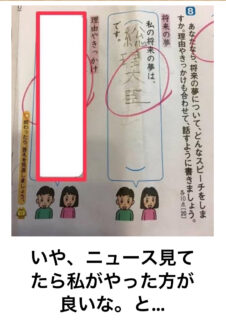 8 あなたなら、将来の夢について、どんなスピーチをしま
すか。理由やきっかけも合わせて、話すように書きましょう。
各10点(20)
将来の夢
私の将来の夢は、
総理大臣
です。
理由やきっかけ
いや、ニュース見て
たら私がやった方が
良いな。と…